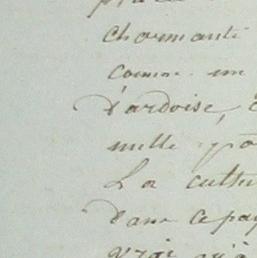 charmante
comme un
d'ardoise,
mille
La cultu
dans ce pay
vrai qu'à